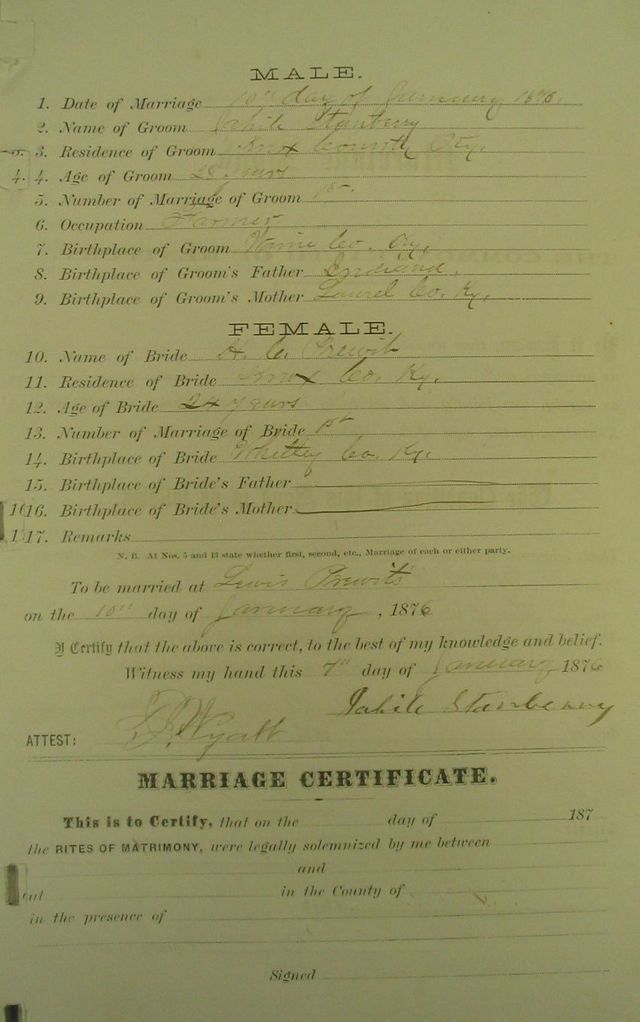 MALE.
1. Date of Marriage 10th day of January 1876.
2. Name of Groom Jahile Stanberry
3. Residence of Groom Knox County Ky.
4. 4. Age of Groom 28 years
5. Number of Marriage of Groom 1st
6. Occupation Farmer
7. Birthplace of Groom Co. Ky.
8. Birthplace of Groom's Father Indiana.
9. Birthplace of Groom's Mother Laurel Co. Ky.
FEMALE.
10. Name of Bride H. C. Prewit
11. Residence of Bride Knox Co. Ky.
12. Age of Bride 24 years
13. Number of Marriage of Bride 1st
14. Birthplace of Bride Whitley Co. Ky.
15. Birthplace of Bride's Father
16. Birthplace of Bride's Mother
17. Remarks
N. B. At Nos. 5 and 13 state whether first, second, etc., Marriage of each or either party.
To be married at Lewis Prewits
on the 10th day of January, 1876
I Certify that the above is correct, to the best of my knowledge and belief.
Witness my hand this 7th day of January 1876
Jahile Stanberry
ATTEST: Wyatt
MARRIAGE CERTIFICATE.
This is to Certify, that on the day of 187
the RITES OF MATRIMONY, were legally solemnized by me between
and
at in the County of
in the presence of
Signed